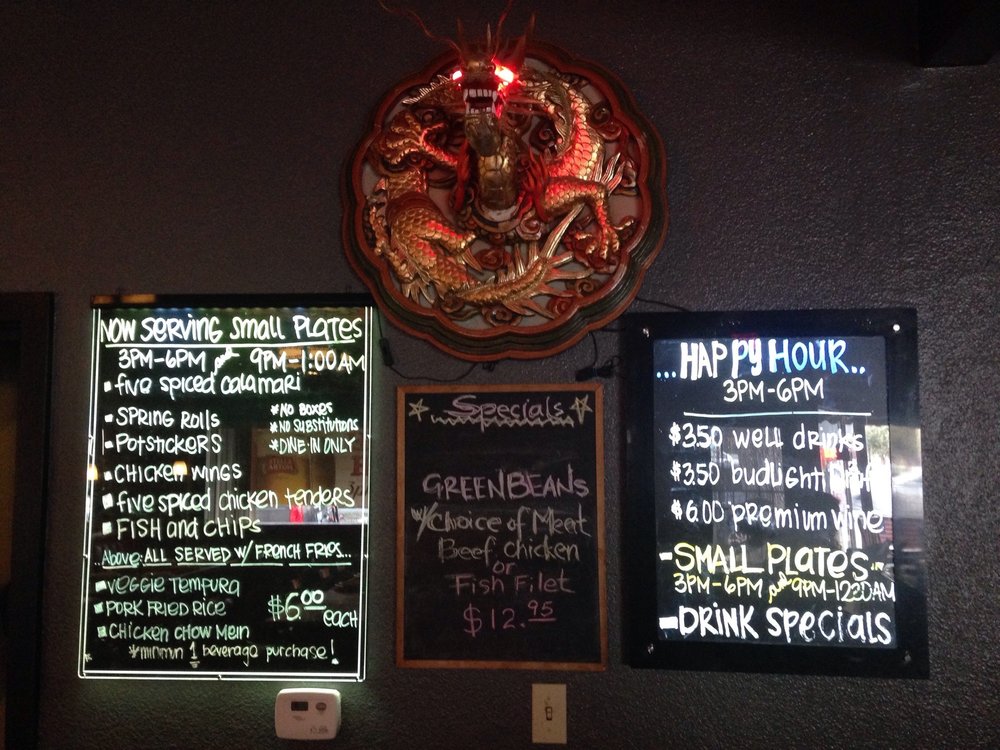 NOW SERVING SMALL PLATES
3PM-6PM and 9PM-1:00AM
• five spiced calamari
• SPRING ROLLS
• POTSTICKERS
• CHICKEN WINGS
• five spiced chicken tenders
• FISH and CHIPS
*NO BOXES
*NO SUBSTITUTIONS
*DINE-IN ONLY
Above: ALL SERVED W/ FRENCH FRIES...
• VEGGIE TEMPURA
• PORK FRIED RICE
• CHICKEN CHOW MEIN
$6.00 EACH
*minimin 1 beverage purchase!
Specials
GREEN BEANS
w/Choice of Meat
Beef, Chicken
or
Fish Filet
$12.95
...HAPPY HOUR..
3PM-6PM
$3.50 well drinks
$3.50 budlight
$6.00 premium wine
-SMALL PLATES
3PM-6PM and 9PM-1230AM
-DRINK SPECIALS